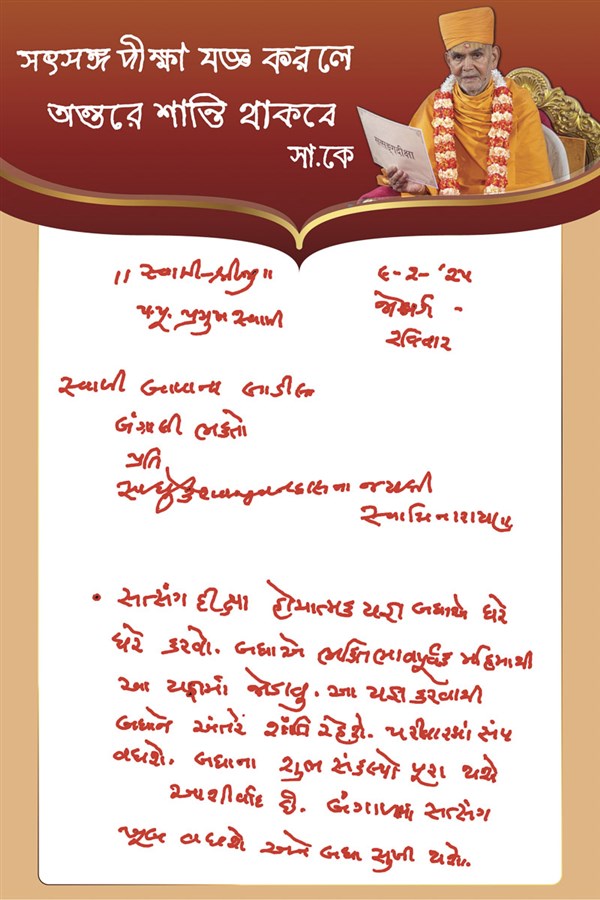 সৎসঙ্গ দীক্ষা যজ্ঞ করলে
অন্তরে শান্তি থাকবে
সা.কে
सत्संगदीक्षा
।। સ્વામી-શ્રીજી ।।
૯-૨-'૨૫
પ.પૂ. પ્રમુખ સ્વામી
જોબર્ગ -
રવિવાર
સ્વામી બાપાના લાડીલા
બંગાળી ભક્તો
પ્રતિ
સાધુ કેશવજીવનદાસના જયશ્રી
સ્વામિનારાયણ
• સત્સંગ દીક્ષા હોમાત્મક યજ્ઞ બધાએ ઘરે
ઘરે કરવો. બધાએ ભક્તિભાવપૂર્વક મહિમાથી
આ યજ્ઞમાં જોડાવુ. આ યજ્ઞ કરવાથી
બધાને અંતરે શાંતિ રહેશે. પરીવારમાં સંપ
વધશે. બધાના શુભ સંકલ્પો પૂરા થશે
આશીર્વાદ છે. બંગાળમાં સત્સંગ
ખૂબ વધશે અને બધા સુખી થશે.